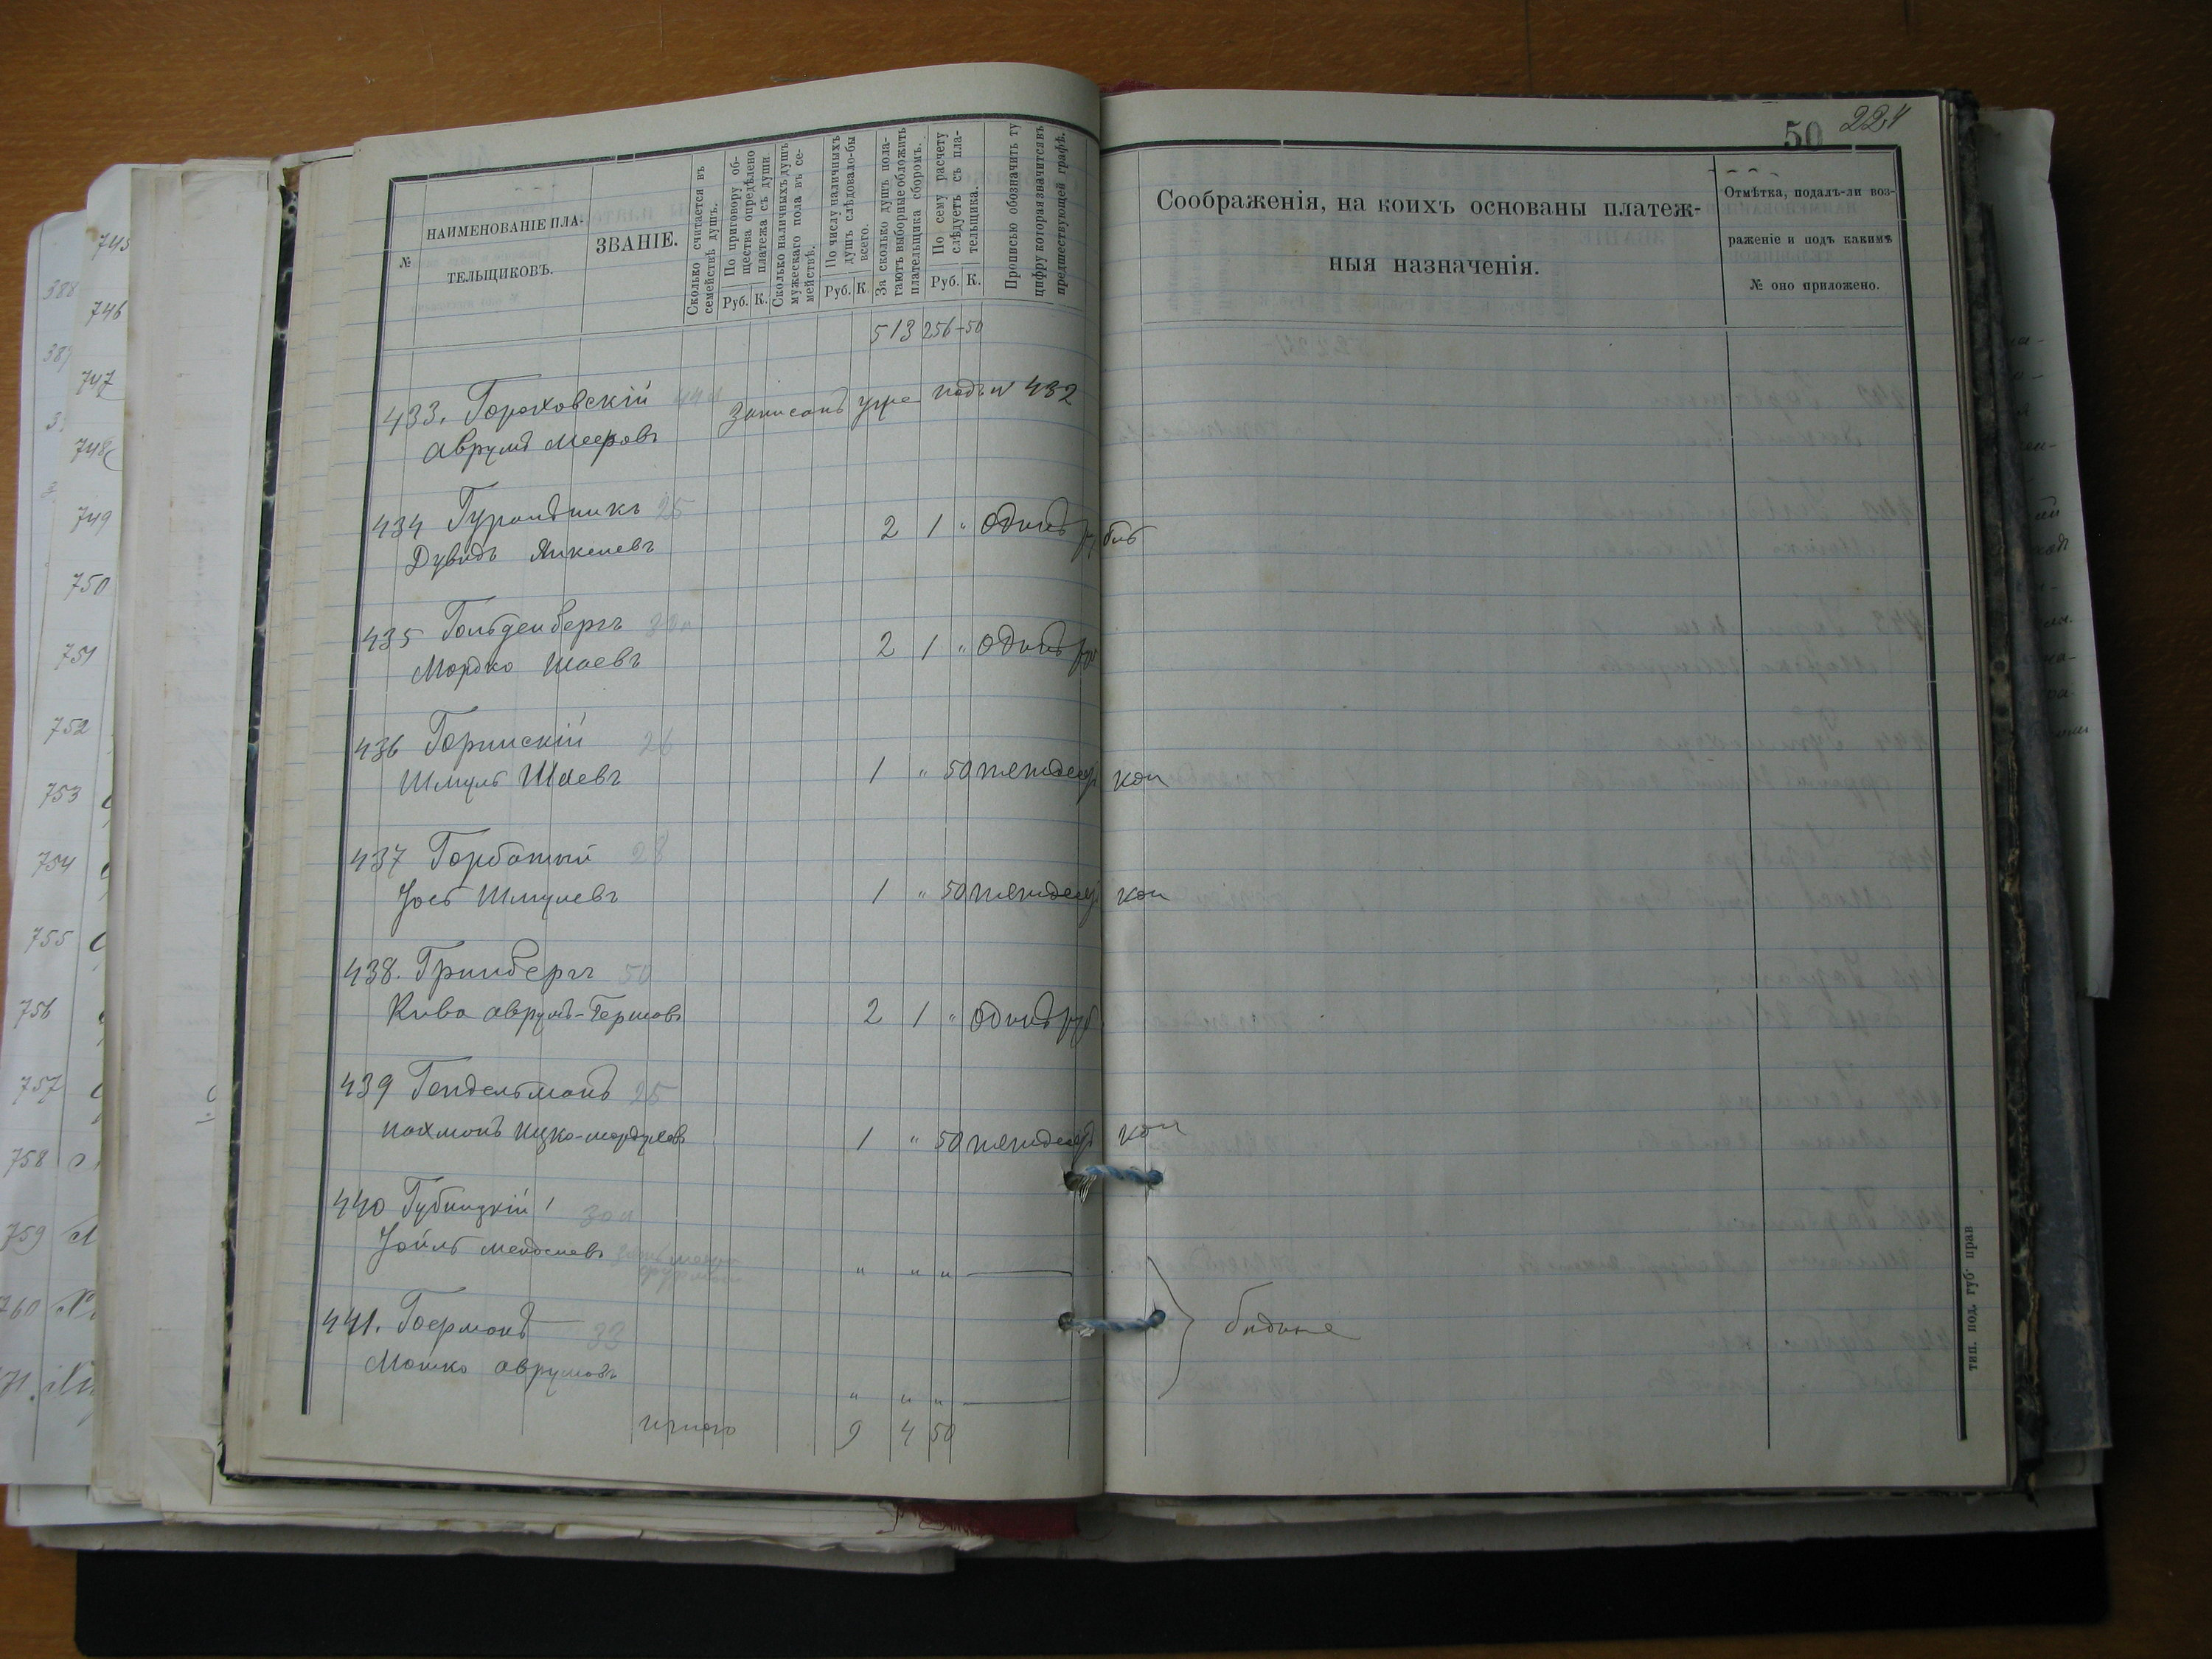 50 224
№
НАИМЕНОВАНІЕ ПЛА-
ТЕЛЬЩИКОВЪ.
ЗВАНІЕ.
Сколько считается въ
семействѣ душъ.
По приговору об-
щества опредѣлено
платежа съ души
Руб. К.
Сколько наличныхъ душъ
мужескаго пола въ се-
мействѣ.
По числу наличныхъ
душъ слѣдовало-бы
всего.
Руб. К
За сколько душъ пола-
гаютъ выборные обложить
плательщика сборомъ.
По сему расчету
слѣдуетъ съ пла-
тельщика.
Руб. К.
Прописью обозначить ту
цифру которая значится въ
предшествующей графѣ.
Соображенія, на коихъ основаны платеж-
ныя назначенія.
Отмѣтка, подалъ-ли воз-
раженіе и подъ какимъ
№ оно приложено.
513 256-50
433. Гороховскій
Аврумъ Мееровъ
Записанъ уже подъ № 432
434 25
Дувидъ Янкелевъ 2 1 " Одинъ рубль
435 Гольденбергъ
Мордко Шаевъ 2 1 " Одинъ руб
436 26
Шмуль Шаевъ 1 " 50 пятьдеся коп
437 Горбатый 28
Іось Шмулевъ 1 " 50 пятьдеся коп
438. Гринбергъ 50
Кива Аврумъ-Гершовъ 2 1 " Одинъ руб
439 Гендельманъ 25
Нахманъ Ицко-Мордуховъ 1 " 50 пятьдеся коп
440 Губницкій
Іойль Менделевъ " " "
441. Гоерманъ 33
Мошко Аврумовъ " " "
бѣдные
итого 9 4 50
тип. под. губ. прав
745
746
747
748
749
750
751
752
753
754
755
756
757
758
759
760
388